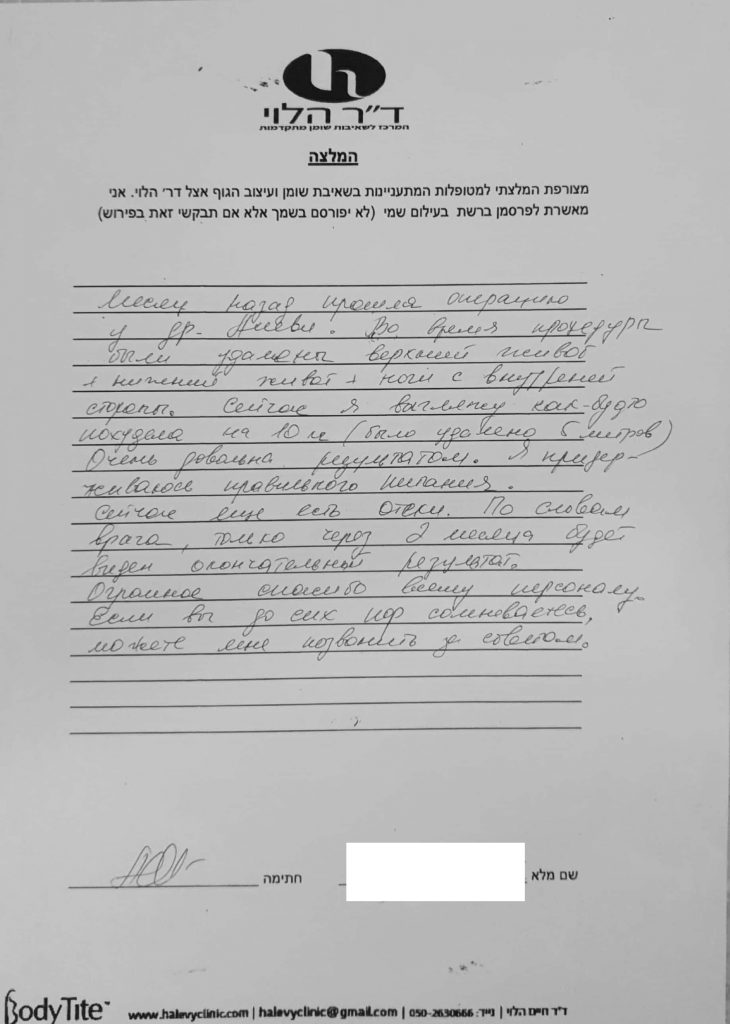 ד״ר הלוי
המרכז לשאיבות שומן מתקדמות
המלצה
מצורפת המלצתי למטופלות המתעניינות בשאיבת שומן ועיצוב הגוף אצל דר׳ הלוי. אני
מאשרת לפרסמן ברשת בעילום שמי (לא יפורסם בשמך אלא אם תבקשי זאת בפירוש)
Месяц назад прошла операцию
у др- . Во время процедуры
были удалены верхний живот
+ нижний живот + ноги с внутреней
стороны. Сейчас я выгляжу как-будто
похудала на 10 (было удалено 5 литров)
Очень довольна результатом. Я придер-
живаюсь правильного питания.
Сейчас еще есть отеки. По словам
врача, только через 2 месяца будет
виден окончательный результат.
Огромное спасибо всему персоналу.
Если вы до сих пор сомневаетесь,
можете мне позвонить за советом.
שם מלא חתימה
BodyTite™ www.halevyclinic.com | halevyclinic@gmail.com | ד״ר חיים הלוי | נייד: 050-2630666